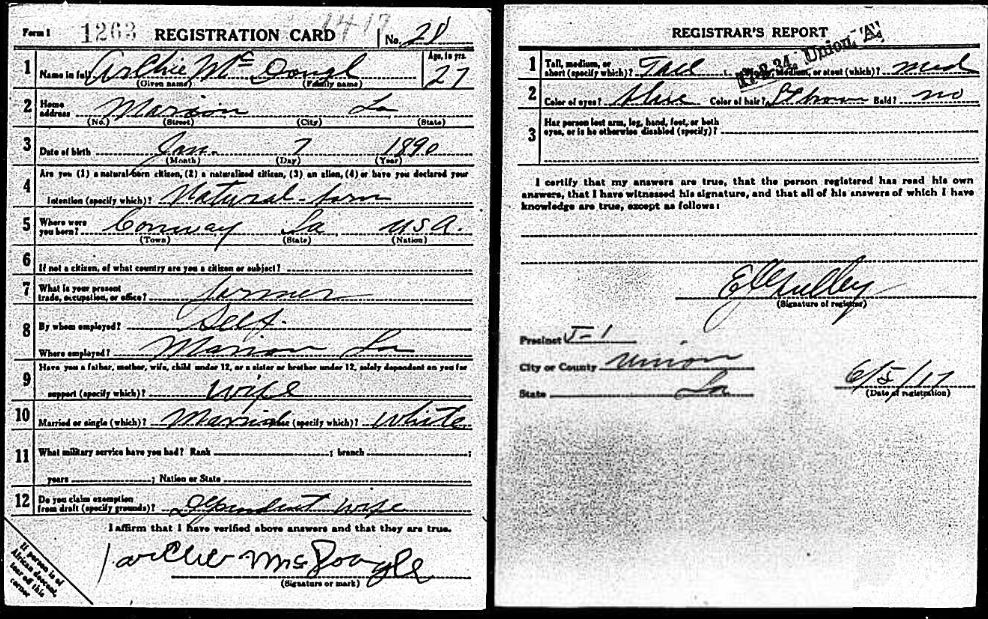 Form 1 1263 REGISTRATION CARD 1417 No. 28
1 Name in full Archie Mc Dougl Age, in yrs. 27
(Given name) (Family name)
2 Home address Marion La
(No.) (Street) (City) (State)
3 Date of birth Jan. 7 1890
(Month) (Day) (Year)
4 Are you (1) a natural-born citizen, (2) a naturalized citizen, (3) an alien, (4) or have you declared your
intention (specify which)? Natural-born
5 Where were you born? Conway La USA.
(Town) (State) (Nation)
6 If not a citizen, of what country are you a citizen or subject?
7 What is your present trade, occupation, or office? farmer
8 By whom employed? Self.
Where employed? Marion La
9 Have you a father, mother, wife, child under 12, or a sister or brother under 12, solely dependent on you for
support (specify which)? Wife
10 Married or single (which)? Married Race (specify which)? White
11 What military service have you had? Rank ; branch ;
years ; Nation or State
12 Do you claim exemption from draft (specify grounds)? Dependent wife
I affirm that I have verified above answers and that they are true.
Archie McDougle
(Signature or mark)
If person is of
African descent,
tear off this
corner
REGISTRAR'S REPORT
17-2-24. Union, "A"
1 Tall, medium, or short (specify which)? Tall medium, or stout (which)? med
2 Color of eyes? Blue Color of hair? Brown Bald? no
3 Has person lost arm, leg, hand, foot, or both
eyes, or is he otherwise disabled (specify)?
I certify that my answers are true, that the person registered has read his own
answers, that I have witnessed his signature, and that all of his answers of which I have
knowledge are true, except as follows:
(Signature of registrar)
Precinct J-1
City or County Union
State La 6/5/17
(Date of registration)